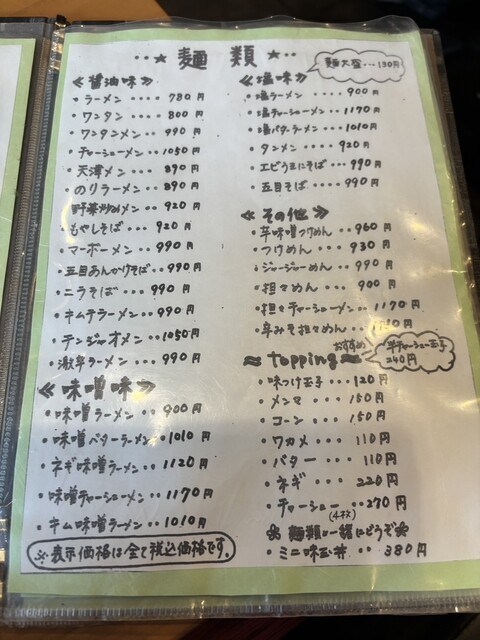 ・・★麺類★・・
麺大盛・・・190円
≪醤油味≫
・ラーメン・・・・780円
・ワンタン・・・・800円
・ワンタンメン・・990円
・チャーシューメン・・1050円
・天津メン・・・890円
・のりラーメン・・890円
・野菜炒めメン・・920円
・もやしそば・・・920円
・マーボーメン・・・990円
・五目あんかけそば・・990円
・ニラそば・・・990円
・キムチラーメン・・・990円
・テンジャオメン・・・1050円
・激辛ラーメン・・990円
≪味噌味≫
・味噌ラーメン・・・900円
・味噌バターラーメン・・1010円
・ネギ味噌ラーメン・・1120円
・味噌チャーシューメン・・1170円
・キム味噌ラーメン・・1010円
※表示価格は全て税込価格です。
≪塩味≫
・塩ラーメン・・・・900円
・塩チャーシューメン・・・1170円
・塩バターラーメン・・・1010円
・タンメン・・・・920円
・エビうま にそば・・・990円
・五目そば・・・・990円
≪その他≫
・辛味噌つけめん・・・960円
・つけめん・・・・930円
・ジャージャーめん・・990円
・担々めん・・・・900円
・担々チャーシューメン・・1170円
・辛みそ担々めん・・
≈topping≈
おすすめ
半チャーシュー玉子
240円
・味つけ玉子・・・120円
・メンマ・・・・150円
・コーン・・・・150円
・ワカメ・・・110円
・バター・・・110円
・ネギ・・・220円
・チャーシュー・・270円
(4枚)
麺類と一緒にどうぞ
・ミニ味玉丼・・380円